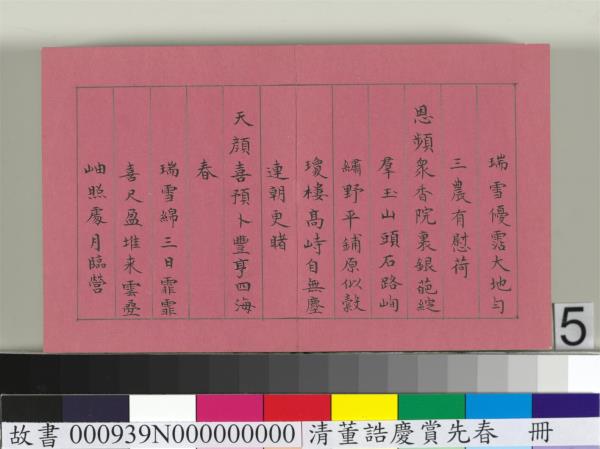 瑞雪優霑大地勻
三農有慰荷
恩頻衆香院裏銀葩綻
羣玉山頭石路峋
繡野平鋪原似縠
瓊樓高峙自無塵
連朝更睹
天顏喜預卜豐亨四海
春
瑞雪綿三日霏霏
喜尺盈堆來雲疊
岫照處月臨營
5
故書 000939N000000000 清董誥慶賞先春 冊